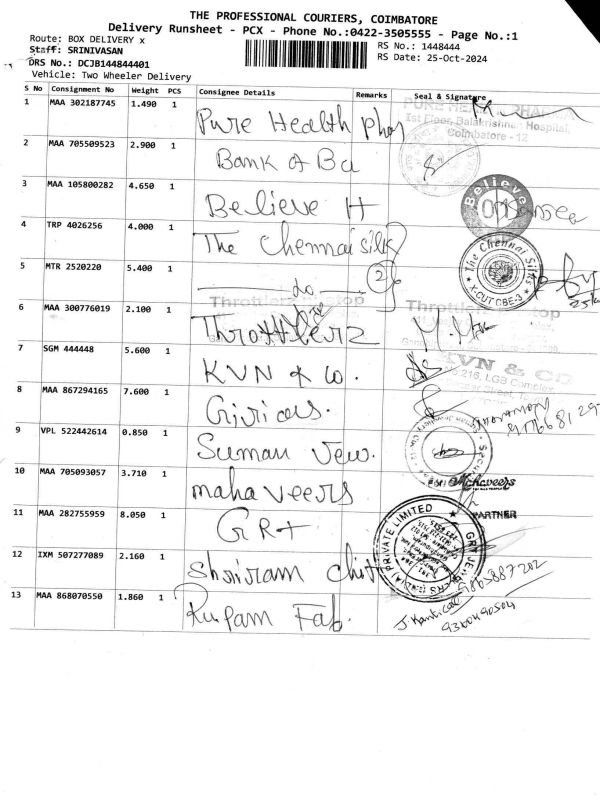 THE PROFESSIONAL COURIERS, COIMBATORE
Delivery Runsheet - PCX - Phone No.:0422-3505555 - Page No.:1
Route: BOX DELIVERY x
RS No.: 1448444
Staff: SRINIVASAN
RS Date: 25-Oct-2024
DRS No.: DCJB144844401
Vehicle: Two Wheeler Delivery
S No Consignment No Weight PCS Consignee Details Remarks Seal & Signature
1 MAA 302187745 1.490 1 Pure Health phar
PURE HEALTH PHARMA
Ist Floor, Balakrishnan Hospital,
Coimbatore - 12
2 MAA 705509523 2.900 1 Bank of Ba
3 MAA 105800282 4.650 1 Believe H
Believe
4 TRP 4026256 4.000 1 The Chennai Silk
The Chennai Silks
X-CUT CBE-3
5 MTR 2520220 5.400 1 do 2
6 MAA 300776019 2.100 1 Throttlerz
7 SGM 444448 5.600 1 KVN & Co.
KVN & CO
216, LGB Complex
8 MAA 867294165 7.600 1
9 VPL 522442614 0.850 1 Suman Jew.
10 MAA 705093057 3.710 1 mahaveers
Mahaveers
PARTNER
11 MAA 282755959 8.050 1 GRT
PRIVATE LIMITED
12 IXM 507277089 2.160 1 Shriram chit
9865887202
13 MAA 868070550 1.860 1 Rupam Fab.
9360490504